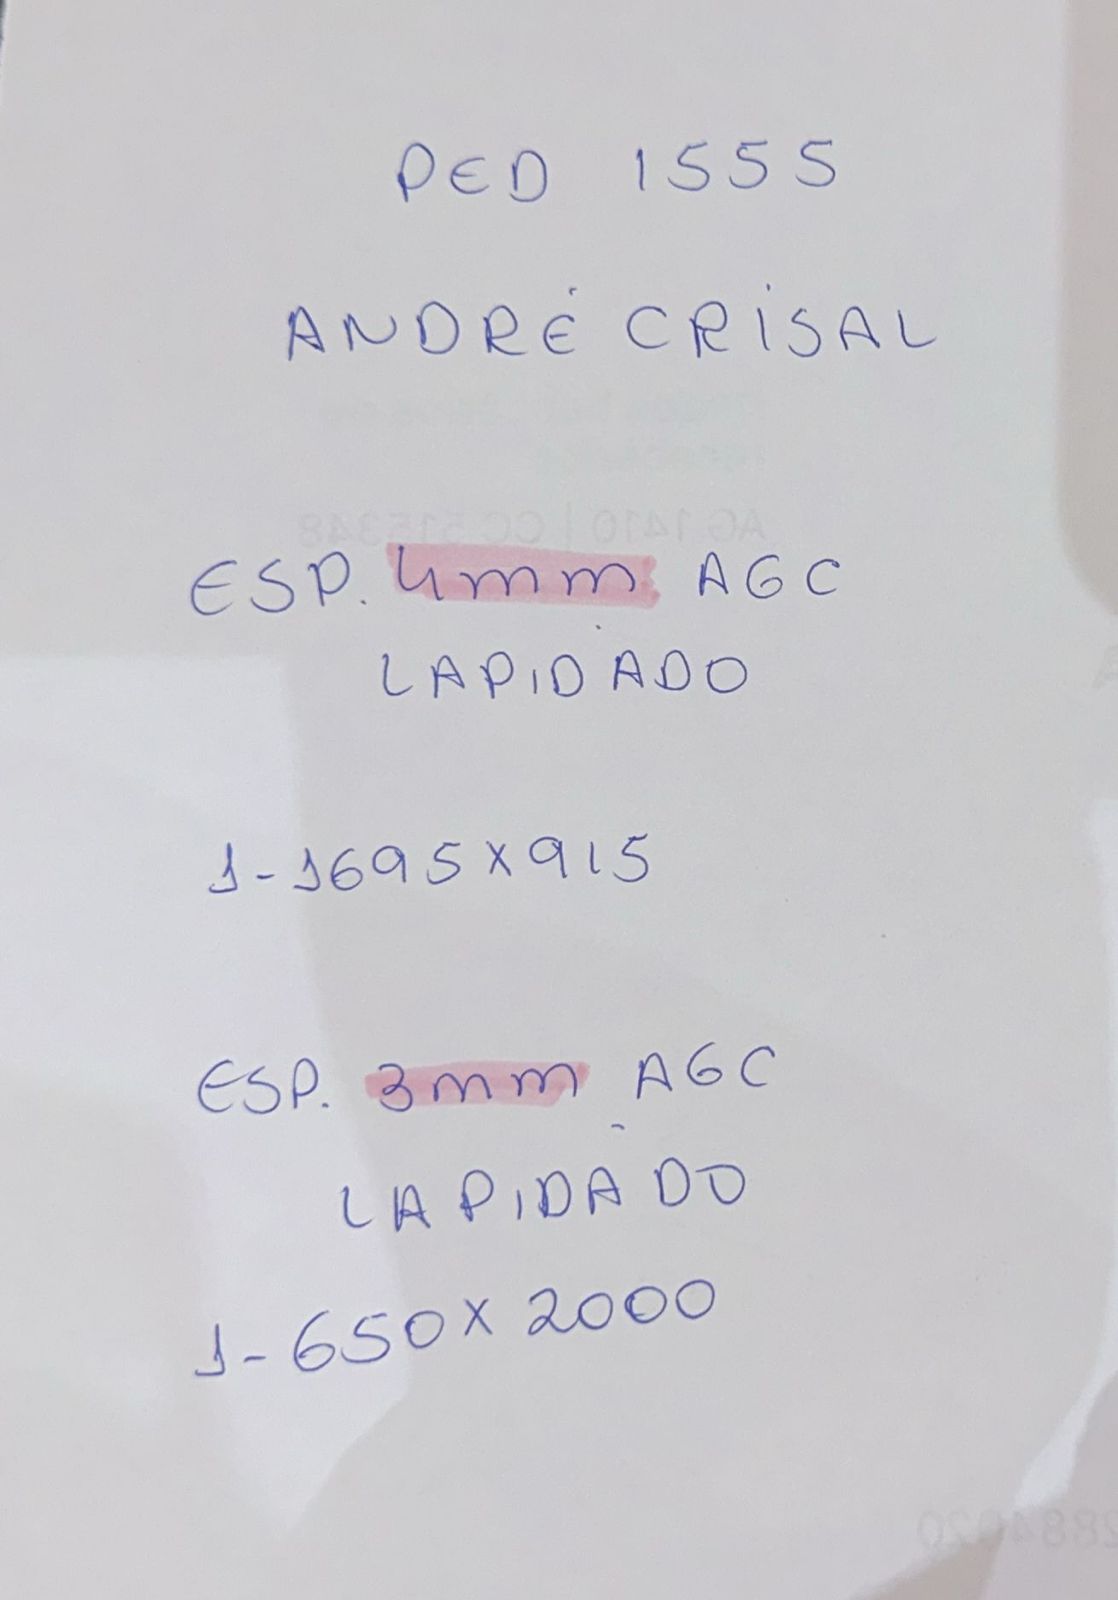 PED 1555
ANDRÉ CRISAL
AG 1410 | CC 515348
ESP. 4mm AGC
LAPIDADO
1-1695x915
ESP. 3mm AGC
LAPIDADO
1-650x2000